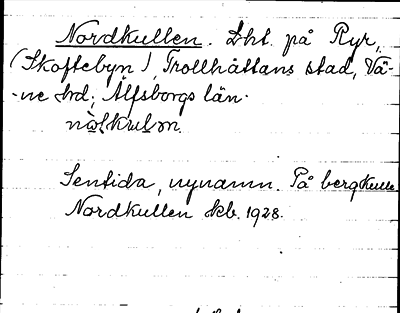 Nordkullen. Lht. på Ryr,
(Skoftebyn), Trollhättans stad, Vä-
-ne hd; Älfsborgs län.
Sentida, nynamn. På bergkulle
Nordkullen skb. 1928.